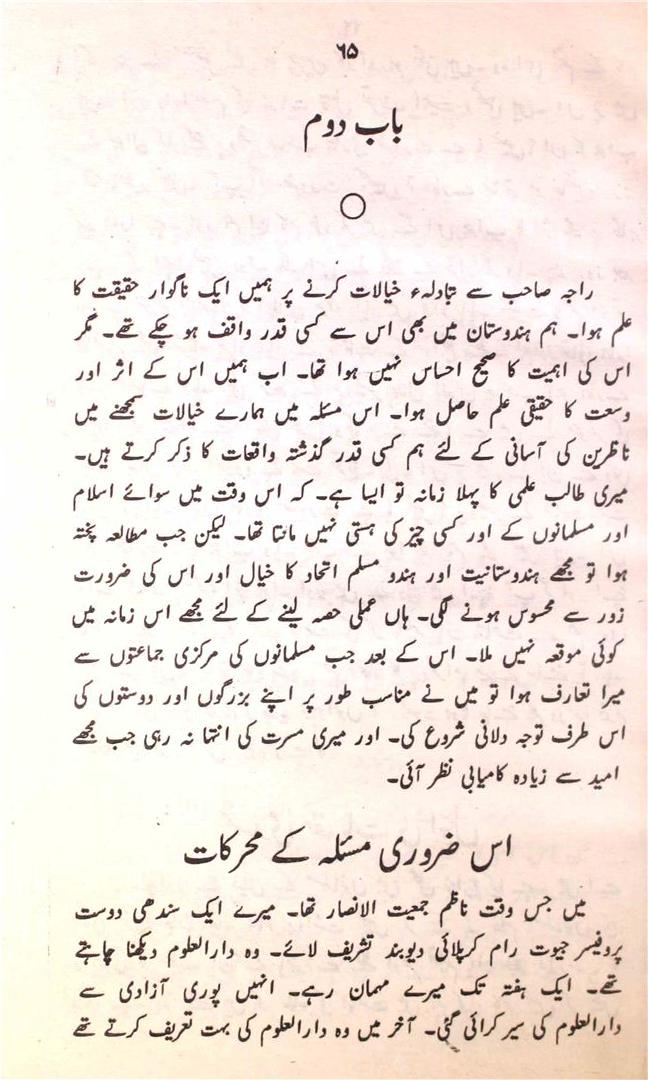 ۶۵
باب دوم
راجہ صاحب سے تبادلہء خیالات کرنے پر ہمیں ایک ناگوار حقیقت کا
علم ہوا۔ ہم ہندوستان میں بھی اس سے کسی قدر واقف ہو چکے تھے۔ مگر
اس کی اہمیت کا صحیح احساس نہیں ہوا تھا۔ اب ہمیں اس کے اثر اور
وسعت کا حقیقی علم حاصل ہوا۔ اس مسئلہ میں ہمارے خیالات سمجھنے میں
ناظرین کی آسانی کے لئے ہم کسی قدر گذشتہ واقعات کا ذکر کرتے ہیں۔
میری طالب علمی کا پہلا زمانہ تو ایسا ہے۔ کہ اس وقت میں سوائے اسلام
اور مسلمانوں کے اور کسی چیز کی ہستی نہیں مانتا تھا۔ لیکن جب مطالعہ پختہ
ہوا تو مجھے ہندوستانیت اور ہندو مسلم اتحاد کا خیال اور اس کی ضرورت
زور سے محسوس ہونے لگی۔ ہاں عملی حصہ لینے کے لئے مجھے اس زمانہ میں
کوئی موقعہ نہیں ملا۔ اس کے بعد جب مسلمانوں کی مرکزی جماعتوں سے
میرا تعارف ہوا تو میں نے مناسب طور پر اپنے بزرگوں اور دوستوں کی
اس طرف توجہ دلانی شروع کی۔ اور میری مسرت کی انتہا نہ رہی جب مجھے
امید سے زیادہ کامیابی نظر آئی۔
اس ضروری مسئلہ کے محرکات
میں جس وقت ناظم جمعیت الانصار تھا۔ میرے ایک سندھی دوست
پروفیسر جیوت رام کرپلائی دیوبند تشریف لائے۔ وہ دارالعلوم دیکھنا چاہتے
تھے۔ ایک ہفتہ تک میرے مہمان رہے۔ انہیں پوری آزادی سے
دارالعلوم کی سیر کرائی گئی۔ آخر میں وہ دارالعلوم کی بہت تعریف کرتے تھے